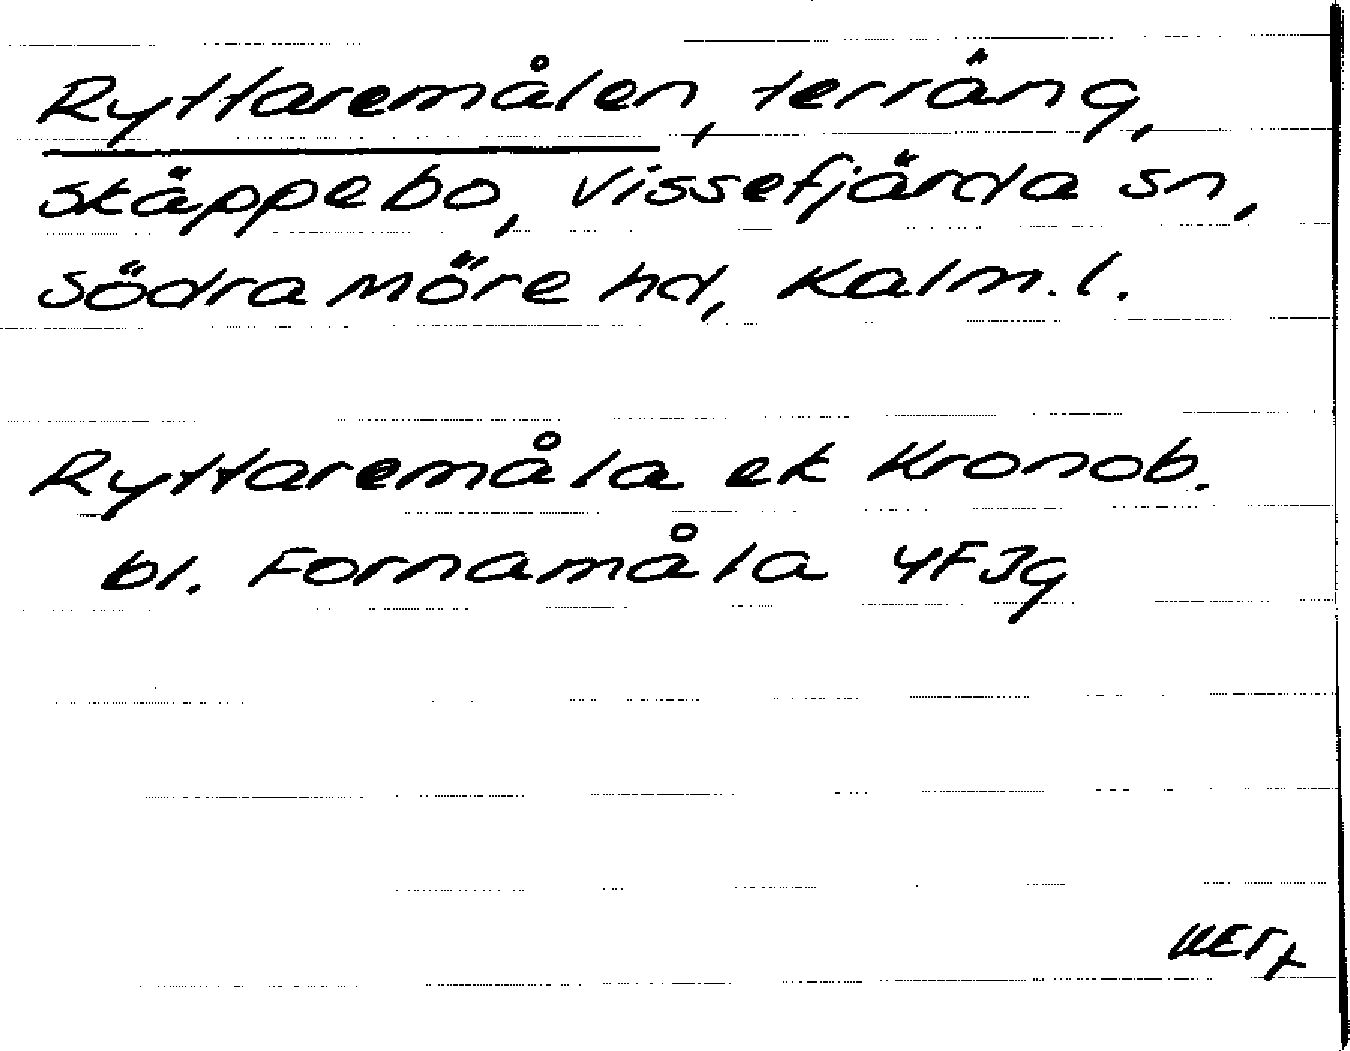 Ryttaremålen, terräng,
Skäppebo, Vissefjärda sn,
Södra Möre hd, Kalm. l.
Ryttaremåla ek Kronob.
bl. Fornamåla 4F3g